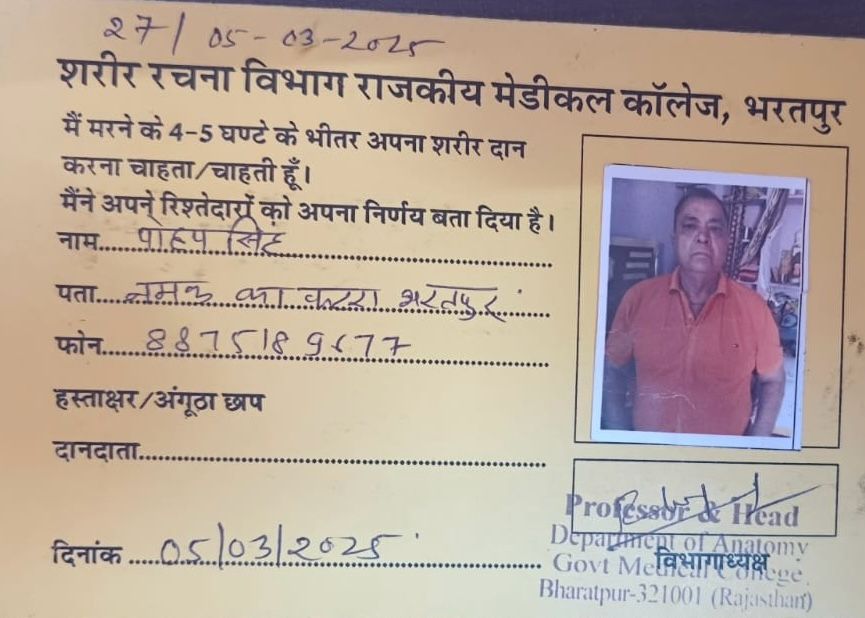 27/ 05-03-2025
शरीर रचना विभाग राजकीय मेडीकल कॉलेज, भरतपुर
मैं मरने के 4-5 घण्टे के भीतर अपना शरीर दान
करना चाहता/चाहती हूँ।
मैंने अपने रिश्तेदारों को अपना निर्णय बता दिया है।
नाम..... पोहप सिंह
पता..... नमक का कटरा भरतपुर
फोन.....
हस्ताक्षर/अंगूठा छाप
दानदाता.....
दिनांक ..... 05/03/2025
Professor & Head
Department of Anatomy
विभागाध्यक्ष
Govt Medical College
Bharatpur-321001 (Rajasthan)